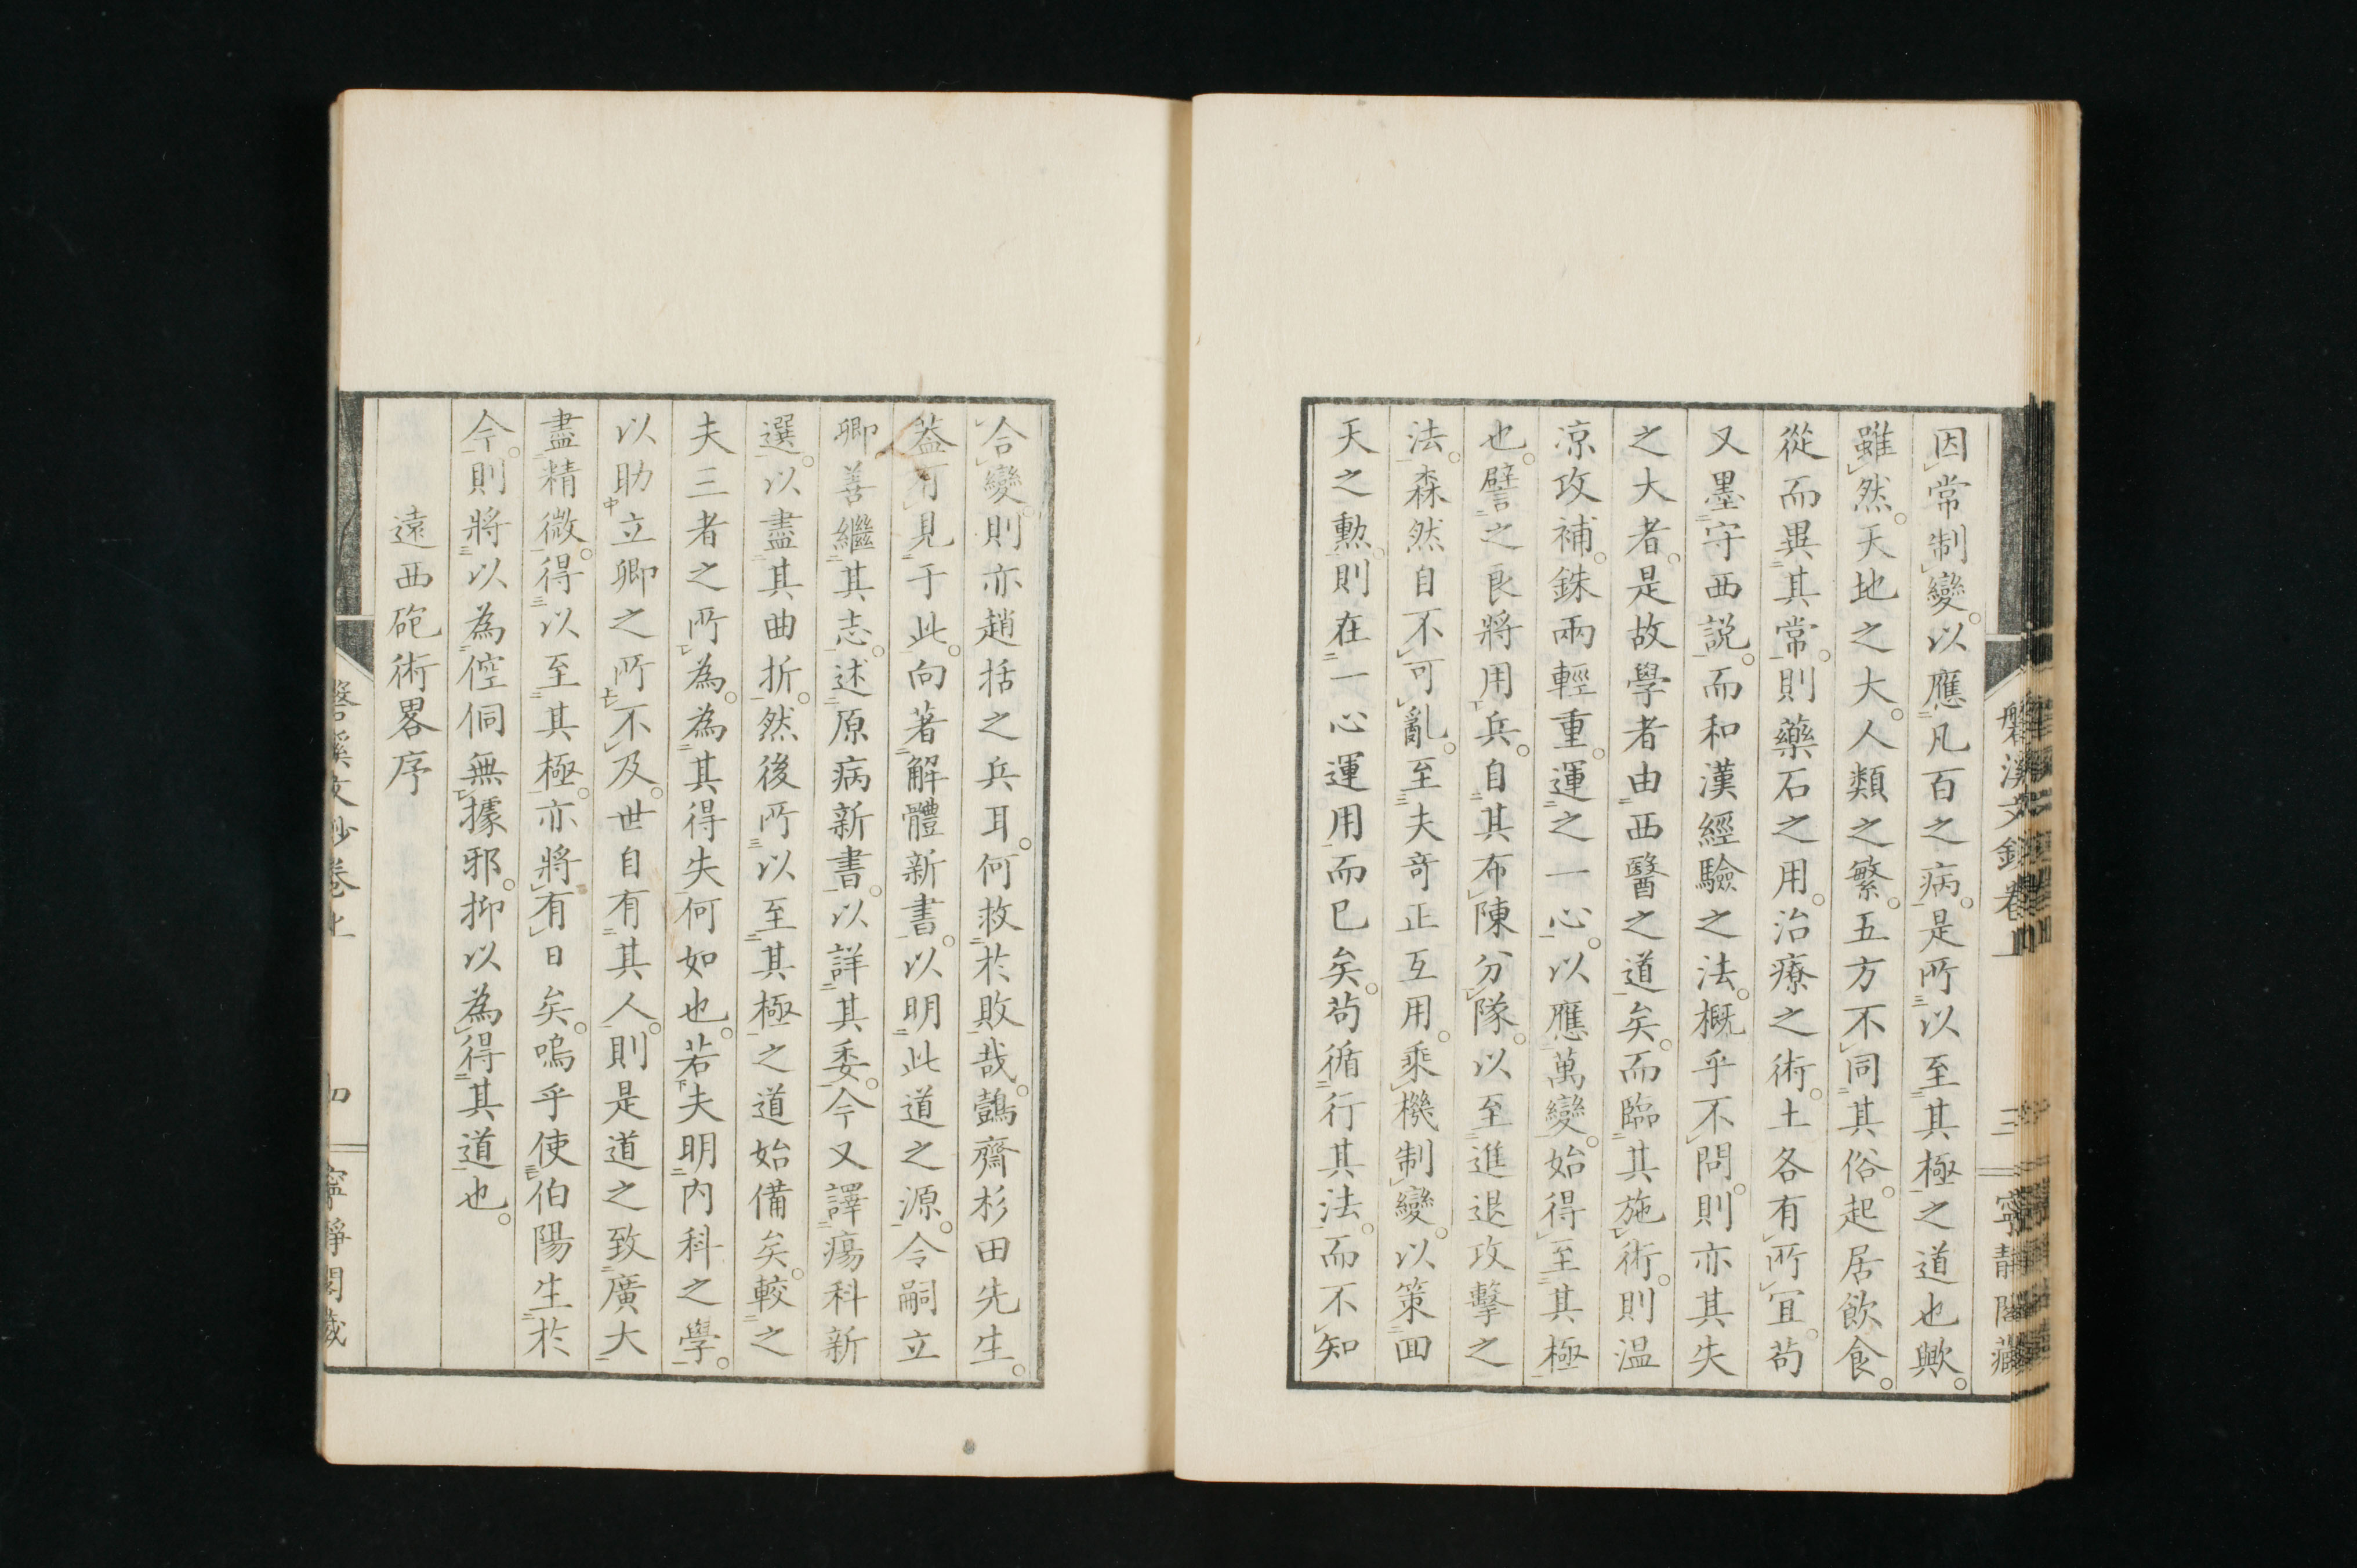 磐溪文鈔卷上 三 寧靜閣藏
因常制變。以應凡百之病。是所以至其極之道也歟。
雖然。天地之大。人類之繁。五方不同其俗。起居飲食。
從而異其常。則藥石之用。治療之術。土各有所宜。苟
又墨守西説。而和漢經驗之法。概乎不問。則亦其失
之大者。是故學者由西醫之道矣。而臨其施術。則温
凉攻補。銖兩輕重。運之一心。以應萬變。始得至其極
也。譬之良將用兵。自其布陳分隊。以至進退攻擊之
法。森然自不可亂。至夫奇正互用。乘機制變。以策回
天之勲。則在一心運用而已矣。苟循行其法。而不知
合變。則亦趙括之兵耳。何救於敗哉。鷧齋杉田先生。
葢有見于此。向著解體新書。以明此道之源。令嗣立
卿善繼其志。述原病新書。以詳其委。今又譯瘍科新
選。以盡其曲折。然後所以至其極之道始備矣。較之
夫三者之所為。為其得失何如也。若夫明内科之學。
以助立卿之所不及。世自有其人。則是道之致廣大
盡精微。得以至其極。亦將有日矣。嗚乎使伯陽生於
今。則將以為倥侗無據邪。抑以為得其道也。
遠西砲術畧序
磐溪文鈔卷上 四 寧靜閣藏